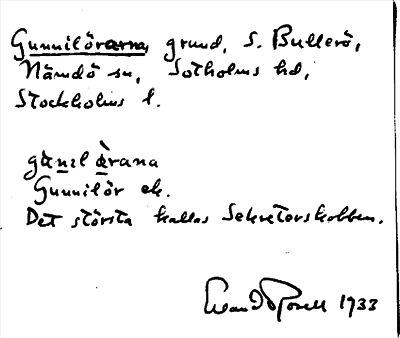 Gunnilörarna, grund, S. Bullerö,
Nämdö sn, Sotholms hd,
Stockholms l.
gànil àrana
Gunnilör ek.
Det största kallas Sekreterskobben.
1933